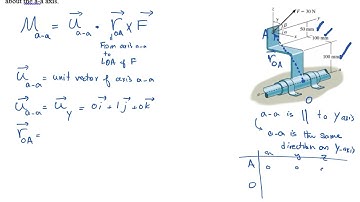 about the a-a axis.
M a-a = u a-a · r OA × F
From axis a-a
to
LOA of F
u a-a = unit vector of axis a-a
u a-a = u y = 0i + 1j + 0k
r OA =
F = 30 N
50 mm
100 mm
100 mm
A
r OA
O
a-a is || to y axis
a-a is the same
direction as y-axis
x y z
A 0 0
O